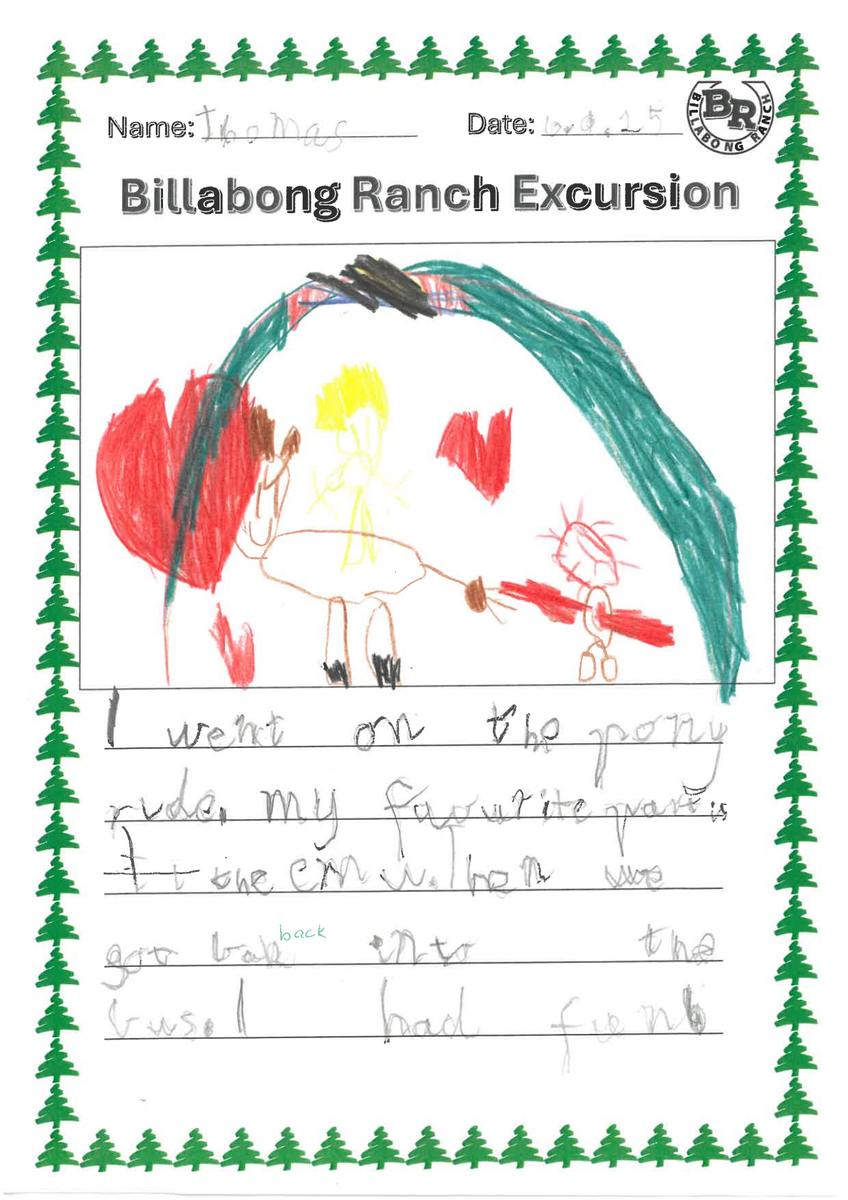 Name: Thomas
Date:
BR
BILLABONG RANCH
Billabong Ranch Excursion
I went on the pony
rude. my favourite part is
the when we
back
got bak into the
bus. I had fun